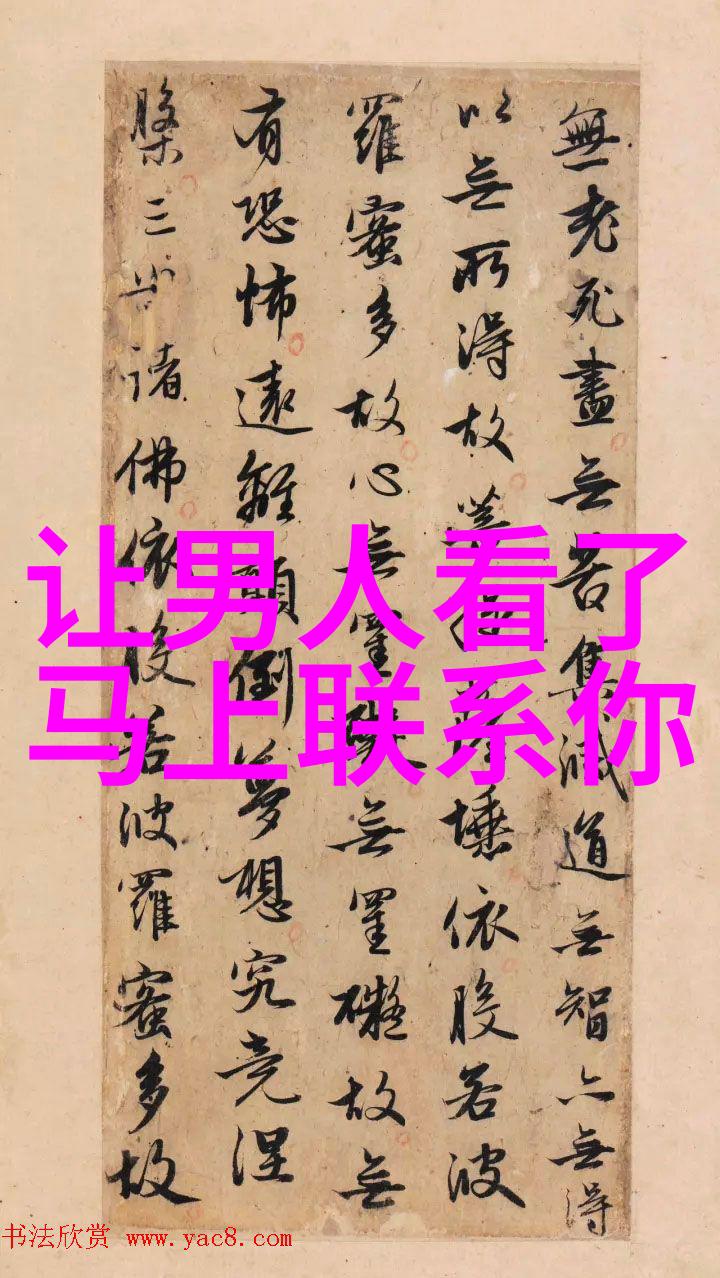 無老死盡無苦集滅道無智亦無得
以無所得故菩提薩埵依般若波
羅蜜多故心無罣礙無罣礙故無
有恐怖遠離顛倒夢想究竟涅
槃三世諸佛依般若波羅蜜多故
让男人看了
马上联系你
书法欣赏 www.yac8.com